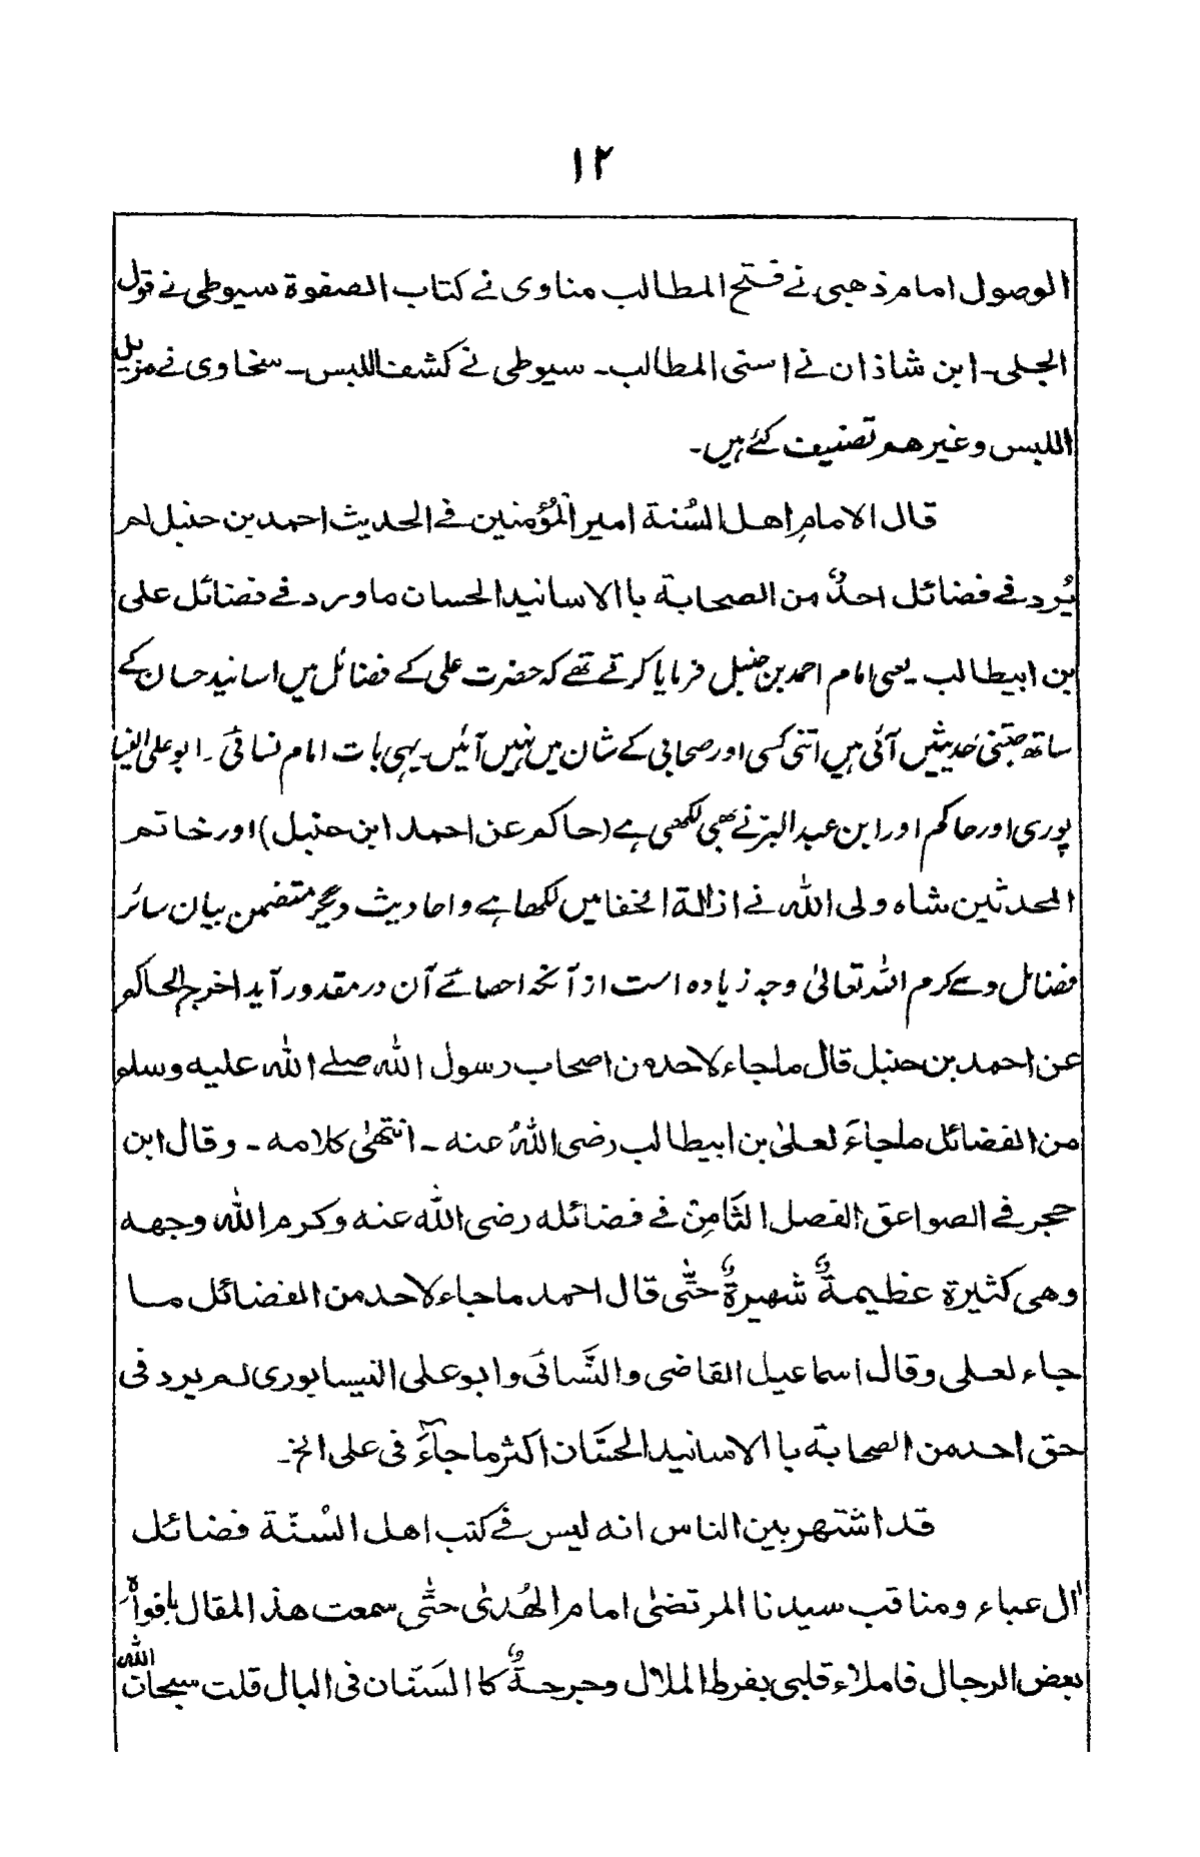 ١٢
الوصول امام ذهبی نے فتح المطالب مناوی نے کتاب الصفوة سیوطی نے قول
الجلی۔ ابن شاذان نے اسنی المطالب۔ سیوطی نے کشف اللبس۔ سخاوی نے مزیل
اللبس وغیرهم تصنیف کئے ہیں۔
قال الامام اهل السُنة امیر المُؤمنین فے الحدیث احمد بن حنبل لم
یُرد فے فضائل احدٌ من الصحابة با الاسانید الحسان ما ورد فے فضائل علی
بن ابیطالب یعنی امام احمد بن حنبل فرمایا کرتے تھے کہ حضرت علی کے فضائل میں اسانید حسان کے
ساتھ جتنی حدیثیں آئی ہیں اتنی کسی اور صحابی کے شان میں نہیں آئیں۔ یہی بات امام نسائی۔ ابو علی النیسا
پوری اور حاکم اور ابن عبد البر نے بھی لکھی ہے (حاکم عن احمد ابن حنبل) اور خاتم
المحدثین شاه ولی الله نے ازالة الخفا میں لکھا ہے و احادیث دیگر متضمن بیان سائر
فضائل وے کرم اللہ تعالیٰ وجہ زیاده است از آنکہ احصائے آن در مقدور آید اخرج الحاکم
عن احمد بن حنبل قال ما جاء لاحد من اصحاب رسول الله صلے الله علیه وسلم
من الفضائل ما جاءَ لعلیٰ بن ابیطالب رضی اللهُ عنه ۔ انتهیٰ کلامه ۔ وقال ابن
حجر فے الصواعق الفصل الثَامِن فے فضائله رضی الله عنه وکرم الله وجهه
وهی کثیرة عظیمةٌ شهیرةٌ حتّٰی قال احمد ما جاء لاحد من الفضائل ما
جاء لعلی وقال اسماعیل القاضی والنَّسائی وابو علی النیسابوری لم یرد فی
حق احد من الصحابة با الاسانید الحسَان اکثر ما جآءَ فی علی الخ۔
قد اشتهر بین الناس انه لیس فے کتب اهل السُنّة فضائل
اٰل عباء ومناقب سیدنا المرتضیٰ امام الهُدیٰ حتّٰی سمعت هذا المقال بافواہ
بعض الرجال فاملاء قلبی بفرط الملال وجرحةٌ کا السَنَان فی البال قلت سبحان الله